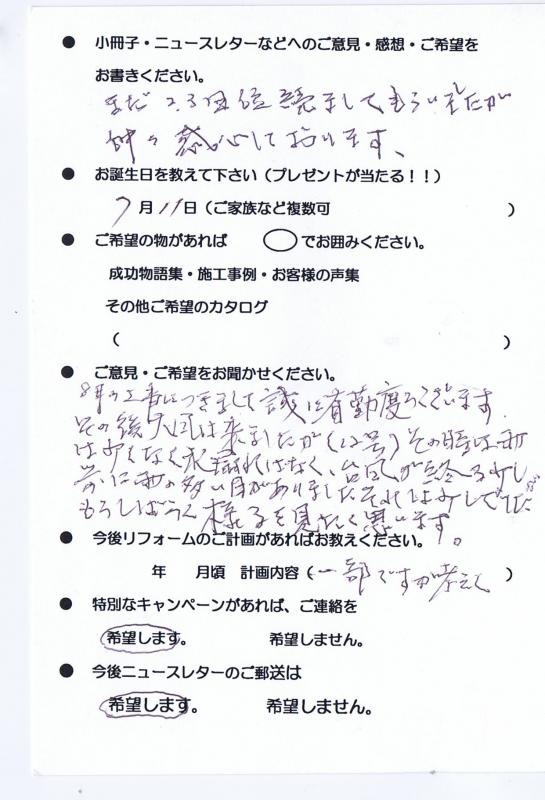 ● 小冊子・ニュースレターなどへのご意見・感想・ご希望を
お書きください。
まだ2.3回位読ましてもらいましたが
時々感心しております、
● お誕生日を教えて下さい（プレゼントが当たる！！）
7月11日（ご家族など複数可 ）
● ご希望の物があれば ◯でお囲みください。
成功物語集・施工事例・お客様の声集
その他ご希望のカタログ
（ ）
● ご意見・ご希望をお聞かせください。
8月の工事につきまして誠に有難うございます.
その後大風は来ましたが（12号）その時は雨
は少くなく水漏れはなく、台風が終る
雨の多い日がありましたそれは少しでした
もうしばらく様子を見たく思います。
● 今後リフォームのご計画があればお教えください。
年 月頃 計画内容（一部ですが考えて ）
● 特別なキャンペーンがあれば、ご連絡を
希望します。 希望しません。
● 今後ニュースレターのご郵送は
希望します。 希望しません。